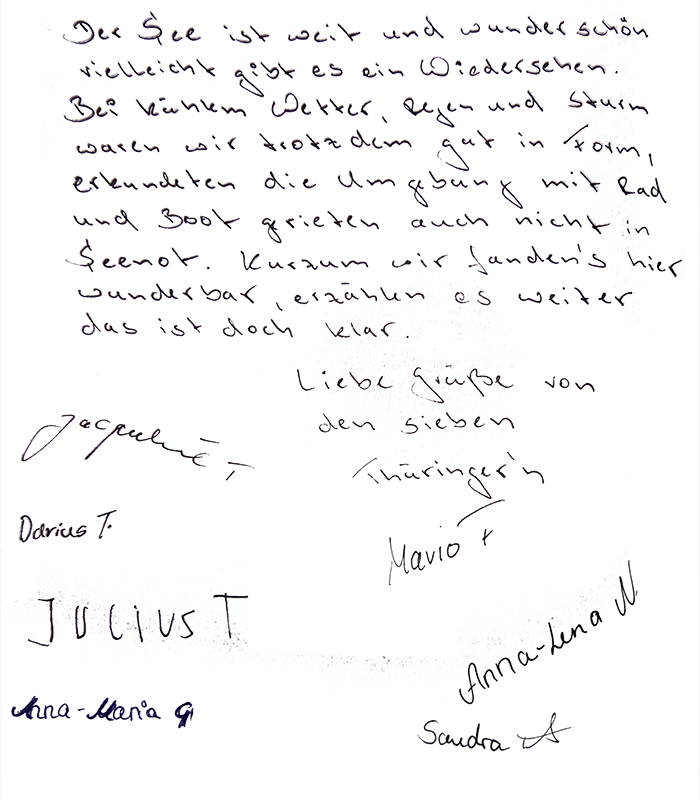 Der See ist weit und wunderschön
vielleicht gibt es ein Wiedersehen.
Bei kühlem Wetter, Regen und Sturm
waren wir trotzdem gut in Form,
erkundeten die Umgebung mit Rad
und Boot gerieten auch nicht in
Seenot. Kurzum wir fanden's hier
wunderbar, erzählen es weiter
das ist doch klar.
Liebe Grüße von
den sieben
Thüringer'n
Jacqueline T
Darius T.
Mario T
JULIUS T
Anna-Lena N.
Anna-Maria G
Sandra A